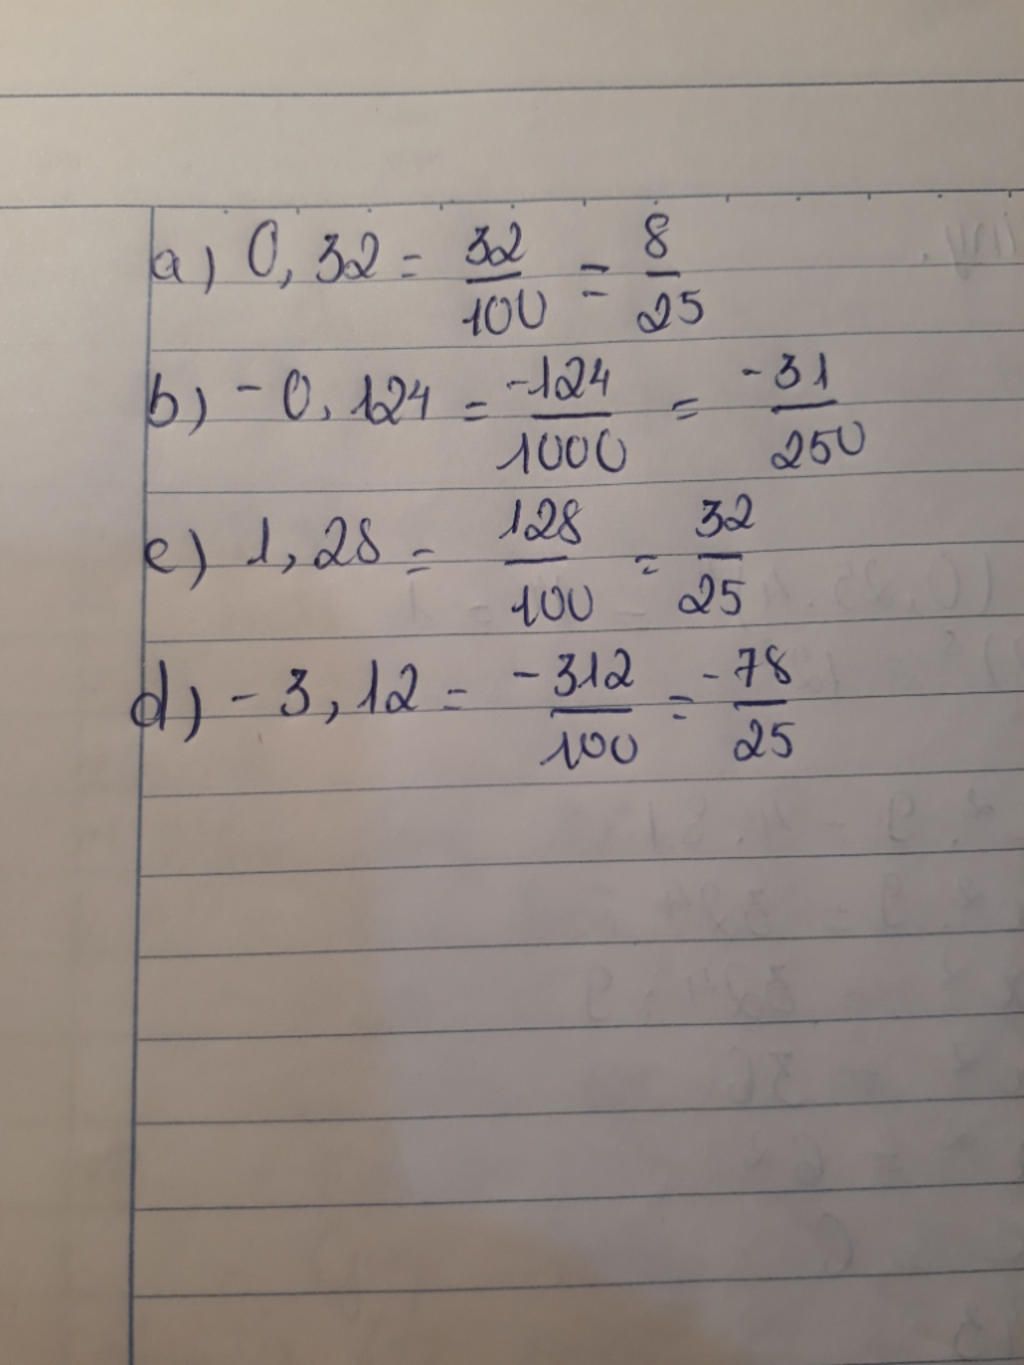 a) 0,32 = 32/100 = 8/25
b) -0,124 = -124/1000 = -31/250
c) 1,28 = 128/100 = 32/25
d) -3,12 = -312/100 = -78/25